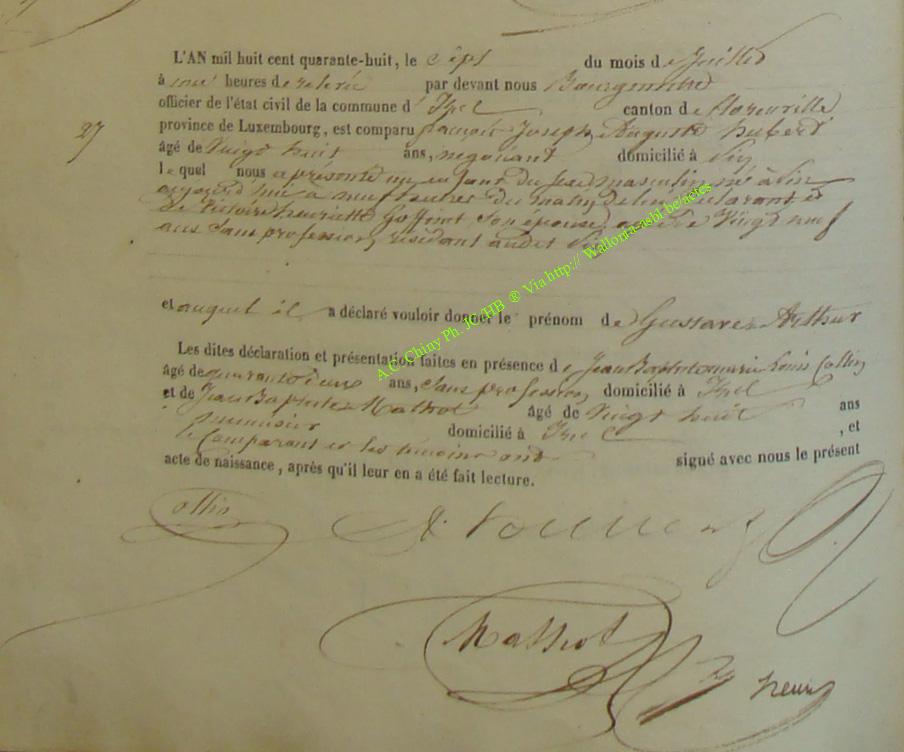 L'AN mil huit cent quarante-huit, le sept du mois de Juillet
à une heures de relevée par devant nous Bourgmestre
officier de l'état civil de la commune d'Izel canton de florenville
27
province de Luxembourg, est comparu Joseph Auguste hubert
âgé de Vingt huit ans, négociant domicilié à
le quel nous a présenté un enfant du sexe masculin né à
aujourd'hui à neuf heures du matin de lui déclarant et
de Victoire henriette son épouse, agée de Vingt neuf
ans Sans profession, résidant audit
et auquel il a déclaré vouloir donner le prénom de Gustave Arthur
Les dites déclaration et présentation faites en présence de Jean Baptiste marie Louis Collin
âgé de quarante ans, Sans profession domicilié à Izel
et de Jean Baptiste Mathot âgé de Vingt huit ans
menuisier domicilié à Izel, et
le Comparant et les témoins ont signé avec nous le présent
acte de naissance, après qu'il leur en a été fait lecture.
A.C. Chiny Ph. JC HB ® Via http:// Wallonia-asbl be/actes
Collin
Mathot